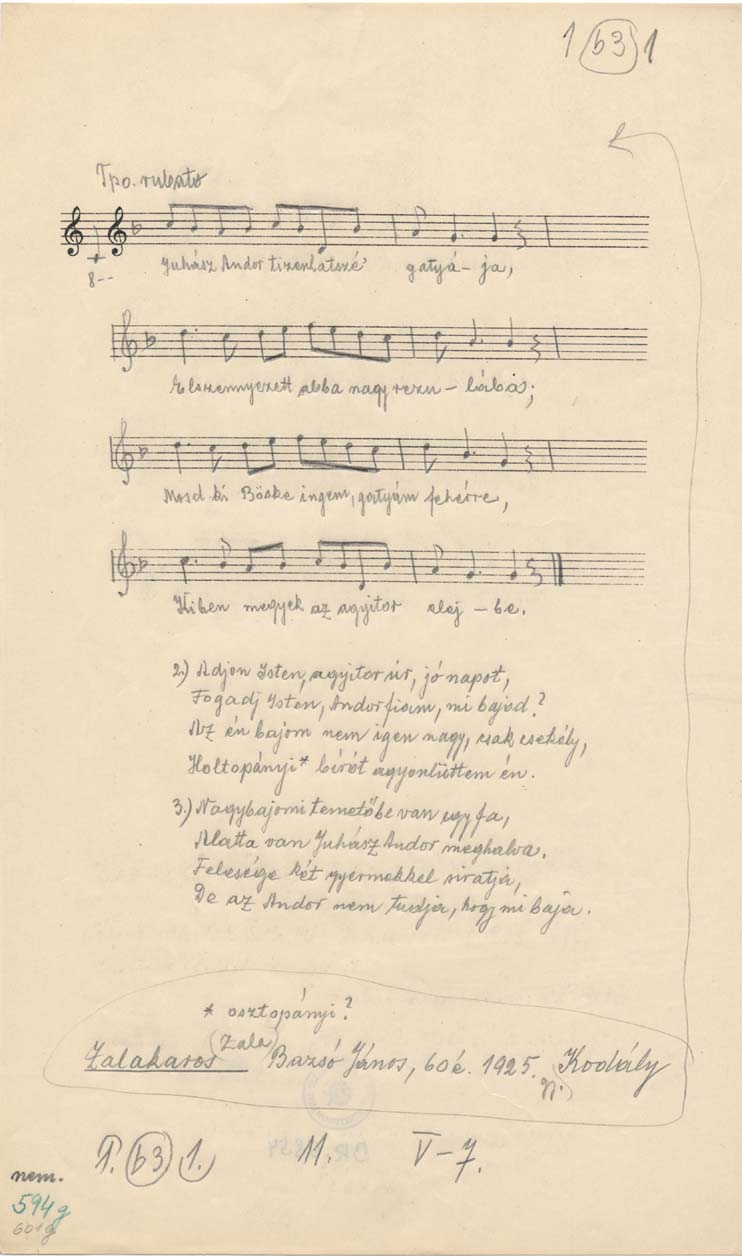 1 b3 1
Tpo. rubato
8--
Juhász Andor tizenhatszé' gatyá-ja,
Elszennyezett abba nagy rezu-lába;
Mosd ki Böske ingem, gatyám fehérre,
Kiben megyek az agyitor elej-be.
2.) Adjon Isten, agyitor úr, jó napot,
Fogadj Isten, Andor fiam, mi bajod?
Az én bajom nem igen nagy, csak csekély,
Holtopányi* bírót agyonlüttem én.
3.) Nagybajomi temetőbe van egy fa,
Alatta van Juhász Andor meghalva.
Felesége két gyermekkel siratja,
De az Andor nem tudja, hogy mi baja.
* osztopányi?
(Zala)
Zalakaros Bazsó János, 60 é. 1925. Kodály
I. b3 1. 11. V-7.
nem.
594g
601g